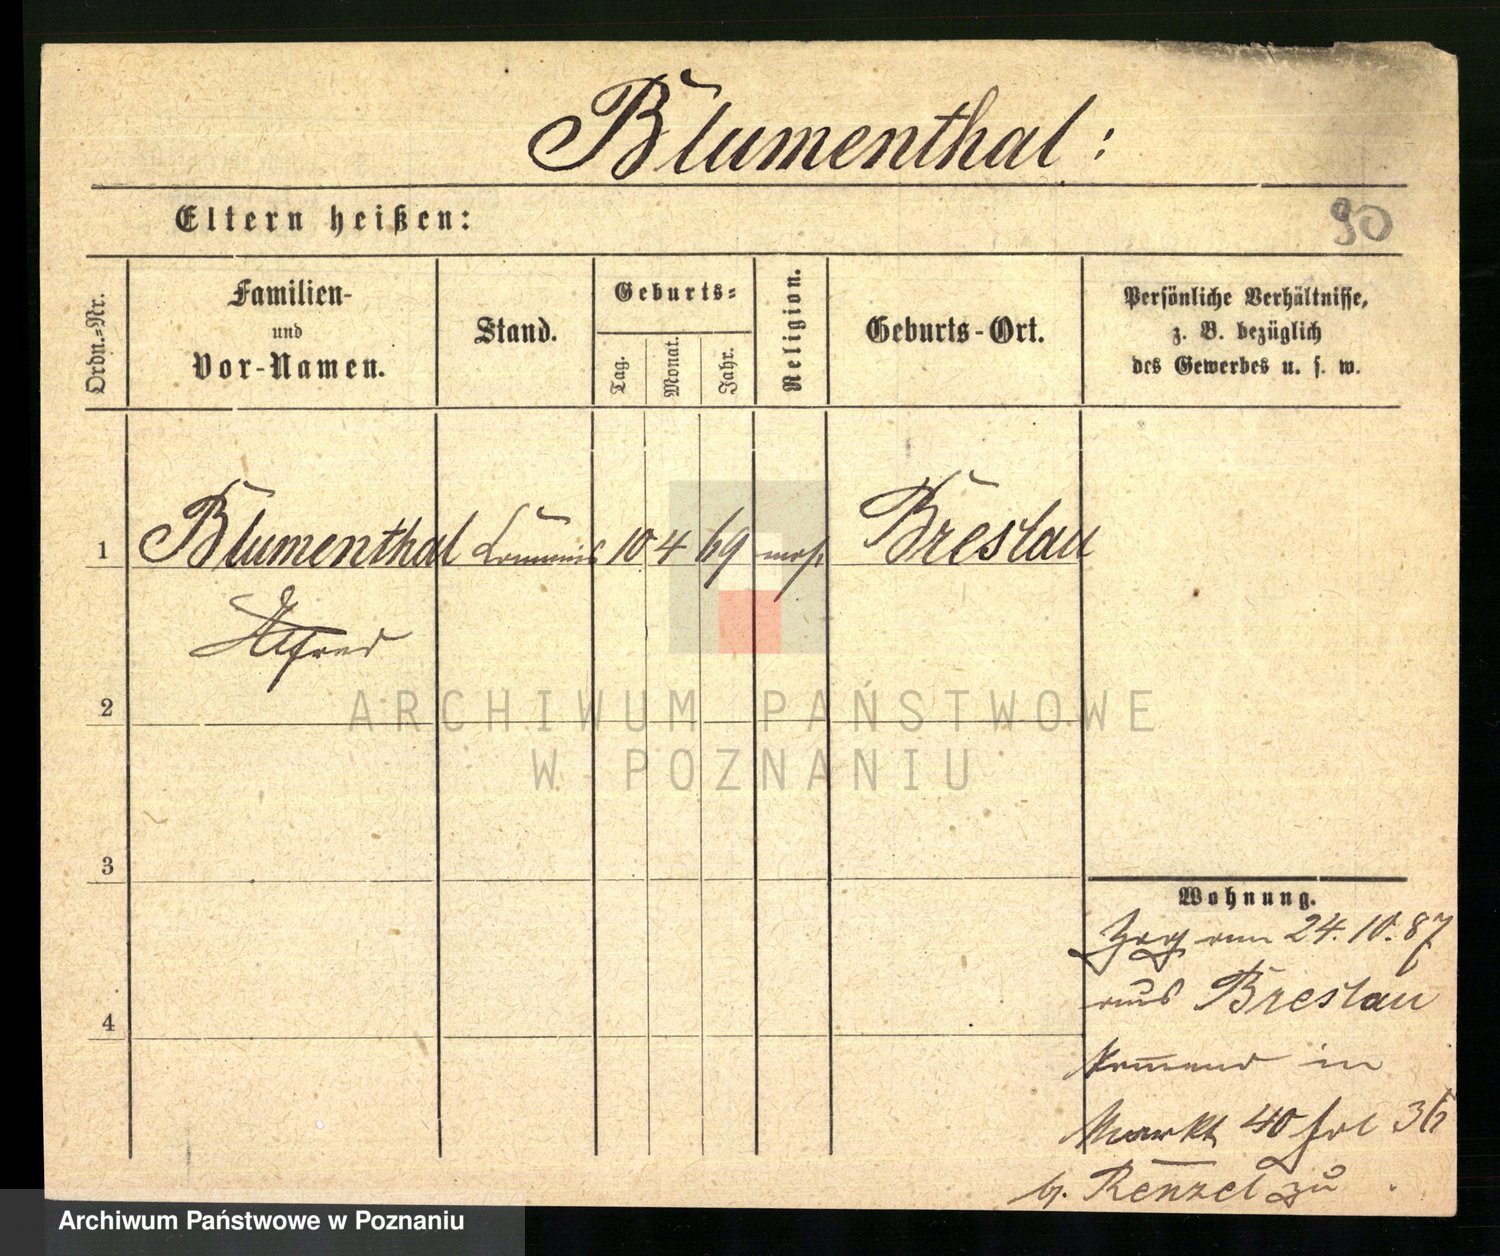 Blumenthal:
Eltern heißen:
90
Ordn.-Nr.
Familien-
und
Vor-Namen.
Stand.
Geburts-
Tag.
Monat.
Jahr.
Religion.
Geburts-Ort.
Persönliche Verhältnisse,
z. B. bezüglich
des Gewerbes u. s. w.
1 Blumenthal Commis 10 4 69 mos. Breslau
Alfred
2
3
4
Wohnung.
Zog am 24.10.87
aus Breslau
kommend in
Markt 40 fol 36
b. Renzel zu
ARCHIWUM PAŃSTWOWE
W POZNANIU
Archiwum Państwowe w Poznaniu